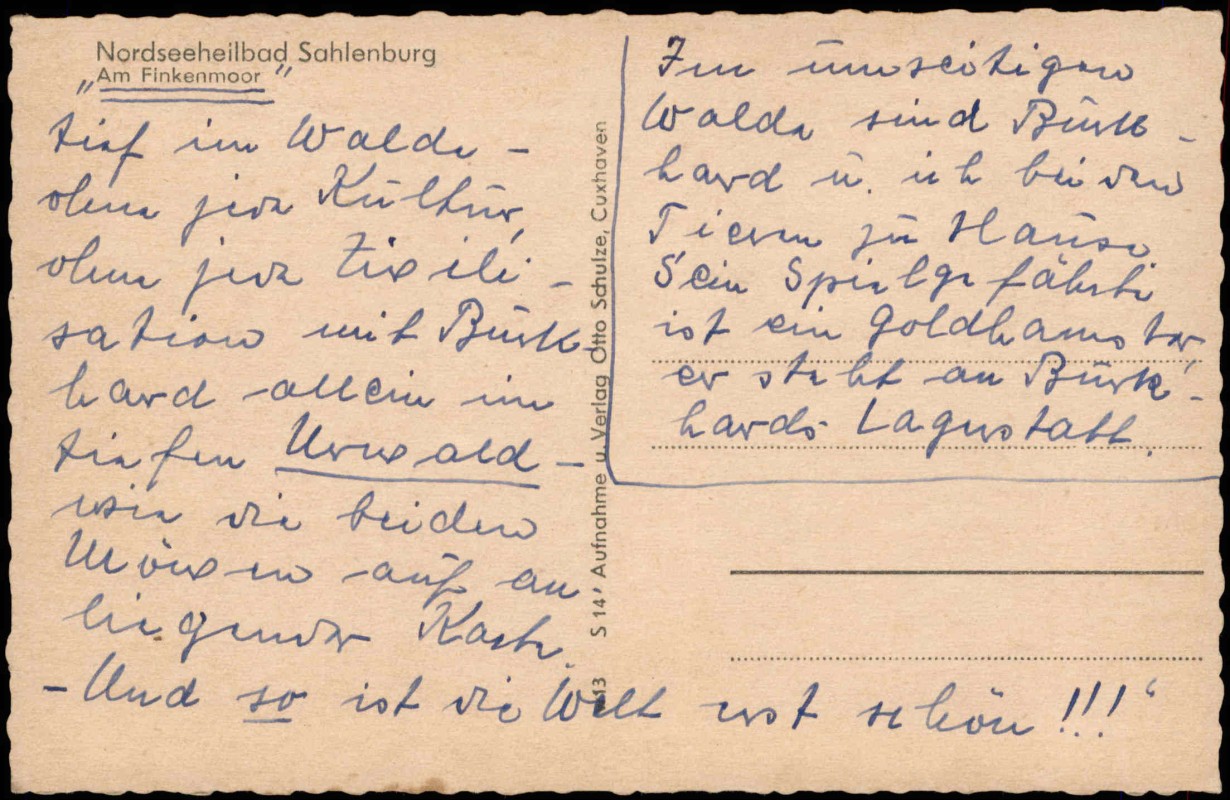 Nordseeheilbad Sahlenburg
„Am Finkenmoor“
tief im Walde –
ohne jede Kultur,
ohne jede Zivili-
sation mit Burk-
hard allein im
tiefen Urwald –
wie die beiden
Möwen auf an
liegender Karte.
– Und so ist die Welt erst schön!!!“
S 14' Aufnahme u. Verlag Otto Schulze, Cuxhaven
Im umseitigen
Walde sind Burk-
hard u. ich bei den
Tieren zu Hause.
Sein Spielgefährte
ist ein Goldhamster,
er steht an Burk-
hards Lagerstatt.